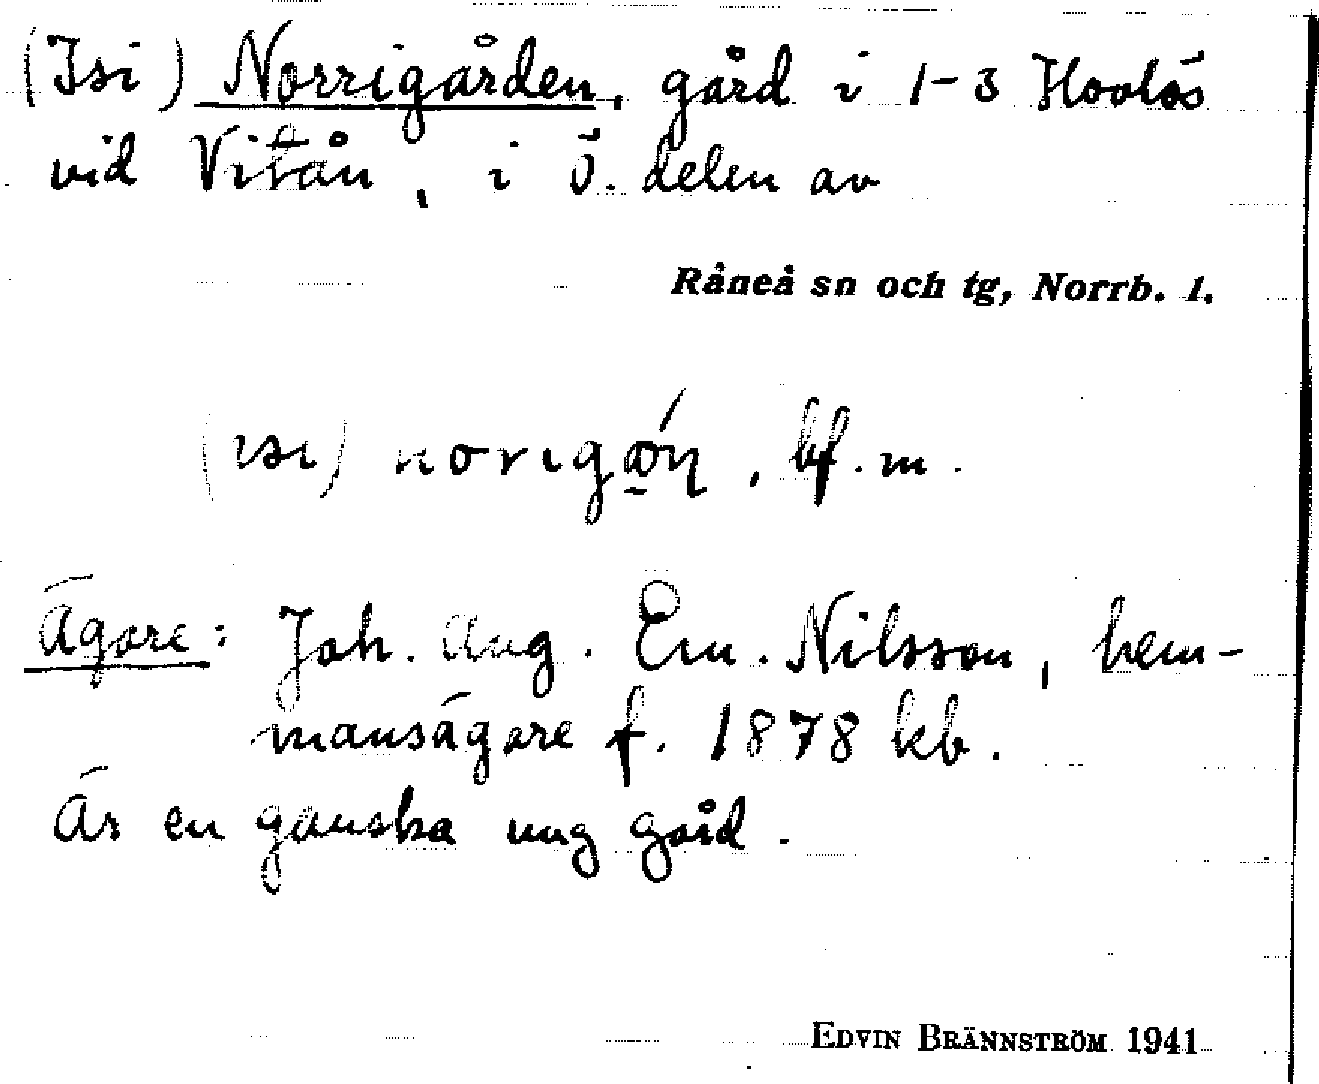 (Isi) Norrigården, gård i 1-3 Hovlös
vid Vitån, i ö. delen av
Råneå sn och tg, Norrb. l.
(ısı) norıgo̱ńη, bf. m.
Ägare: Joh. Aug. Em. Nilsson, hem-
mansägare f. 1878 kb.
Är en ganska ung gård.
EDVIN BRÄNNSTRÖM 1941